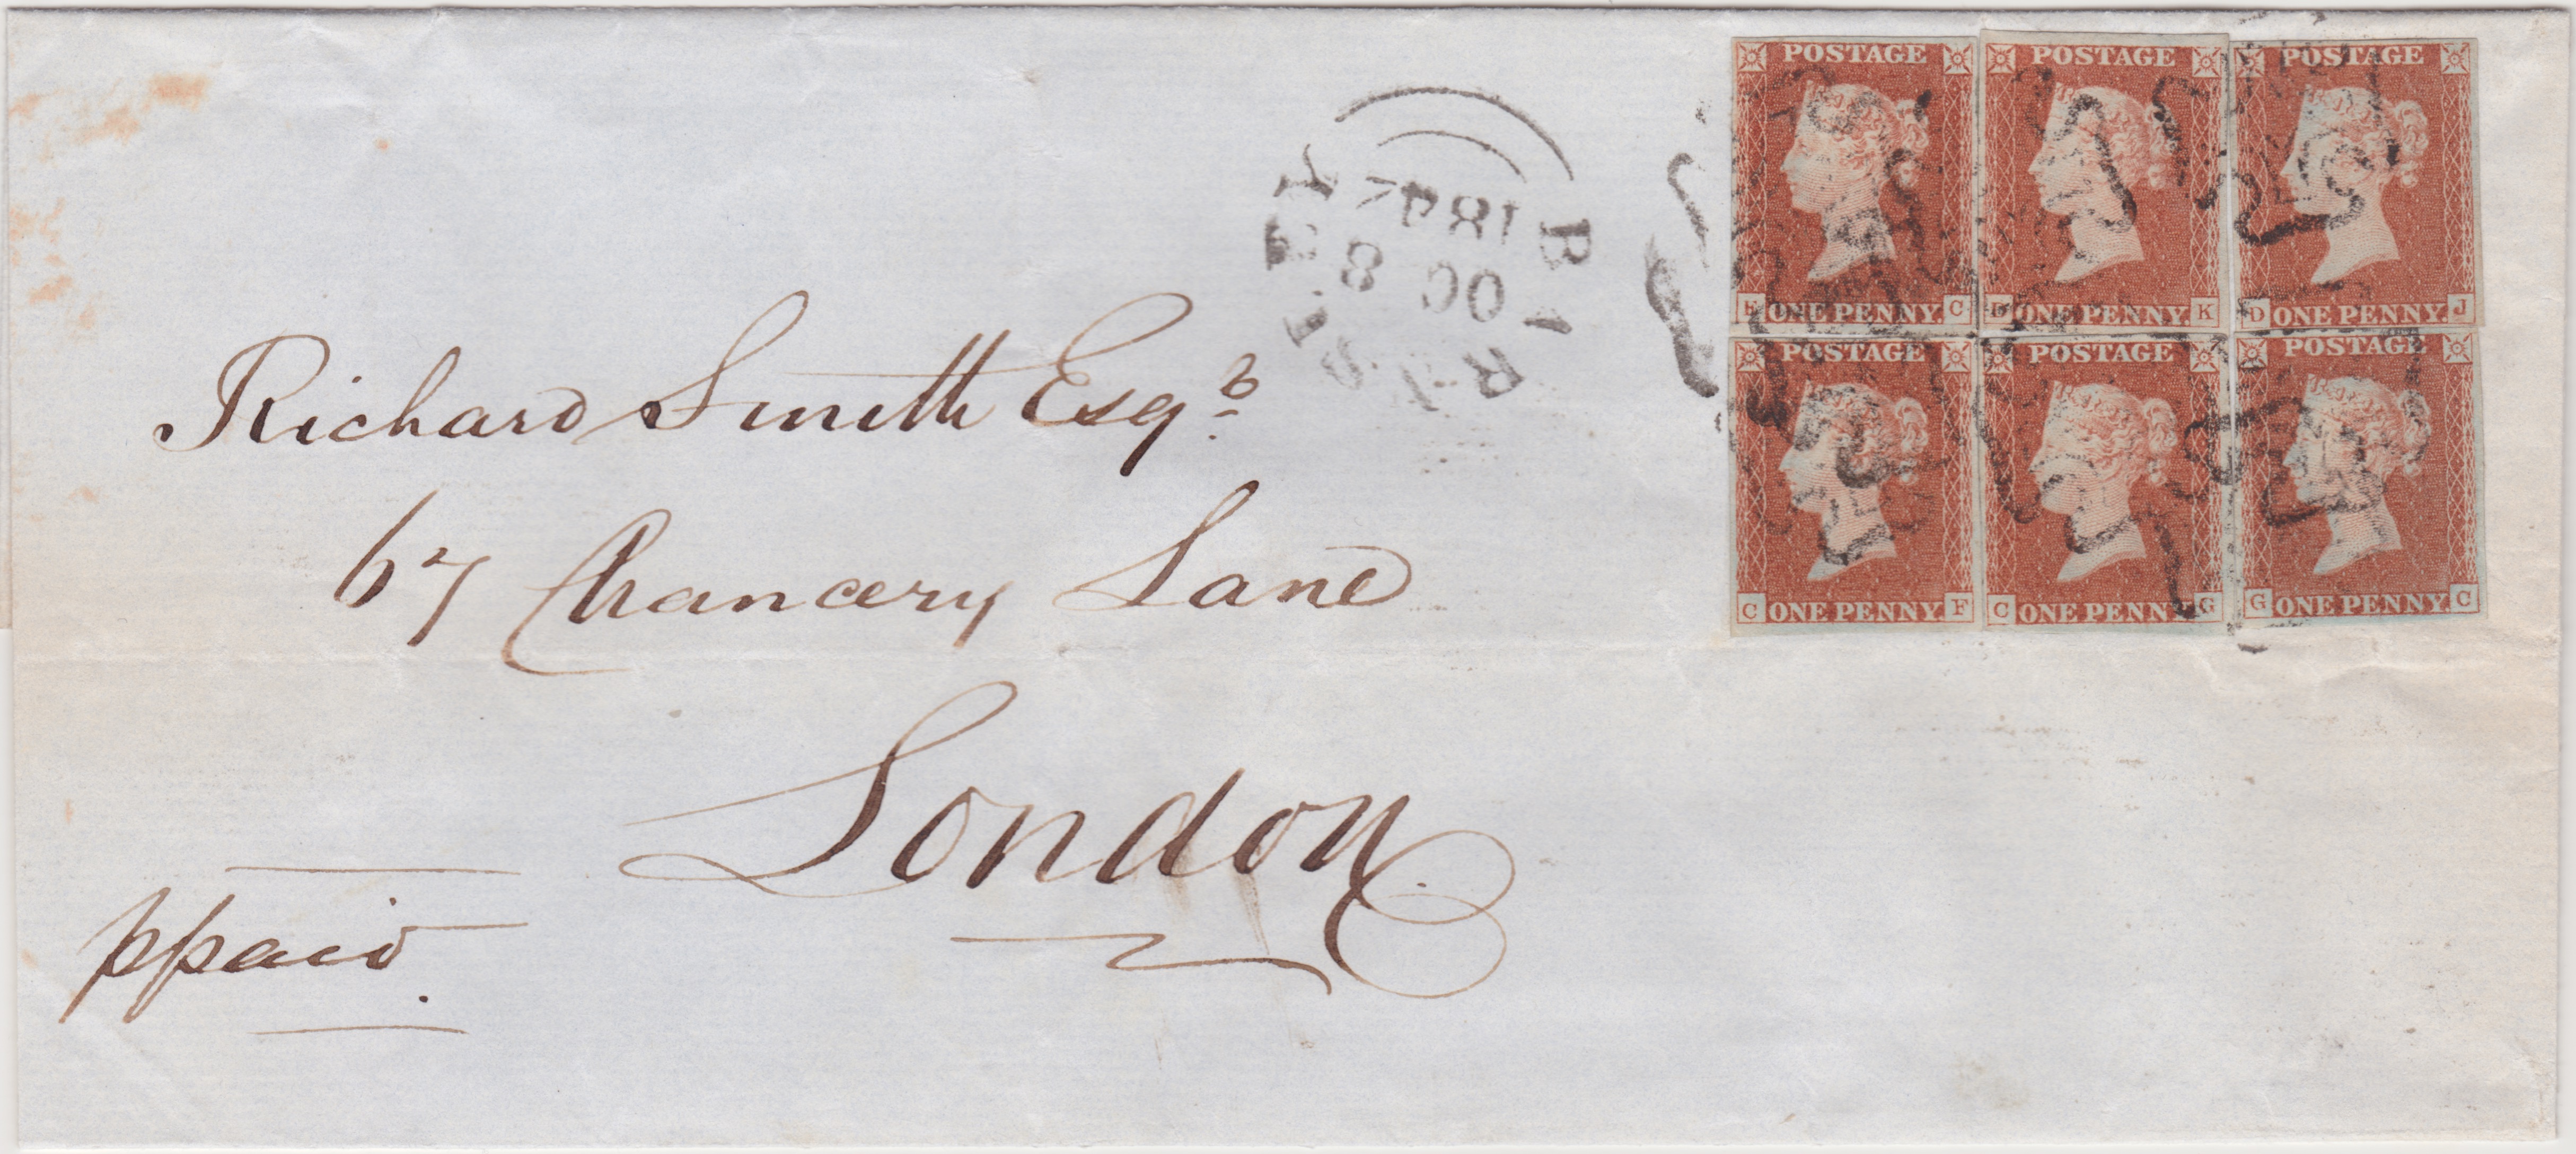 POSTAGE
ONE PENNY. C
POSTAGE
ONE PENNY. K
POSTAGE
D ONE PENNY. J
POSTAGE
C ONE PENNY. F
POSTAGE
C ONE PENNY G
POSTAGE
G ONE PENNY. C
OC 8
Richard Smith Esqr.
67 Chancery Lane
London
ppaid.